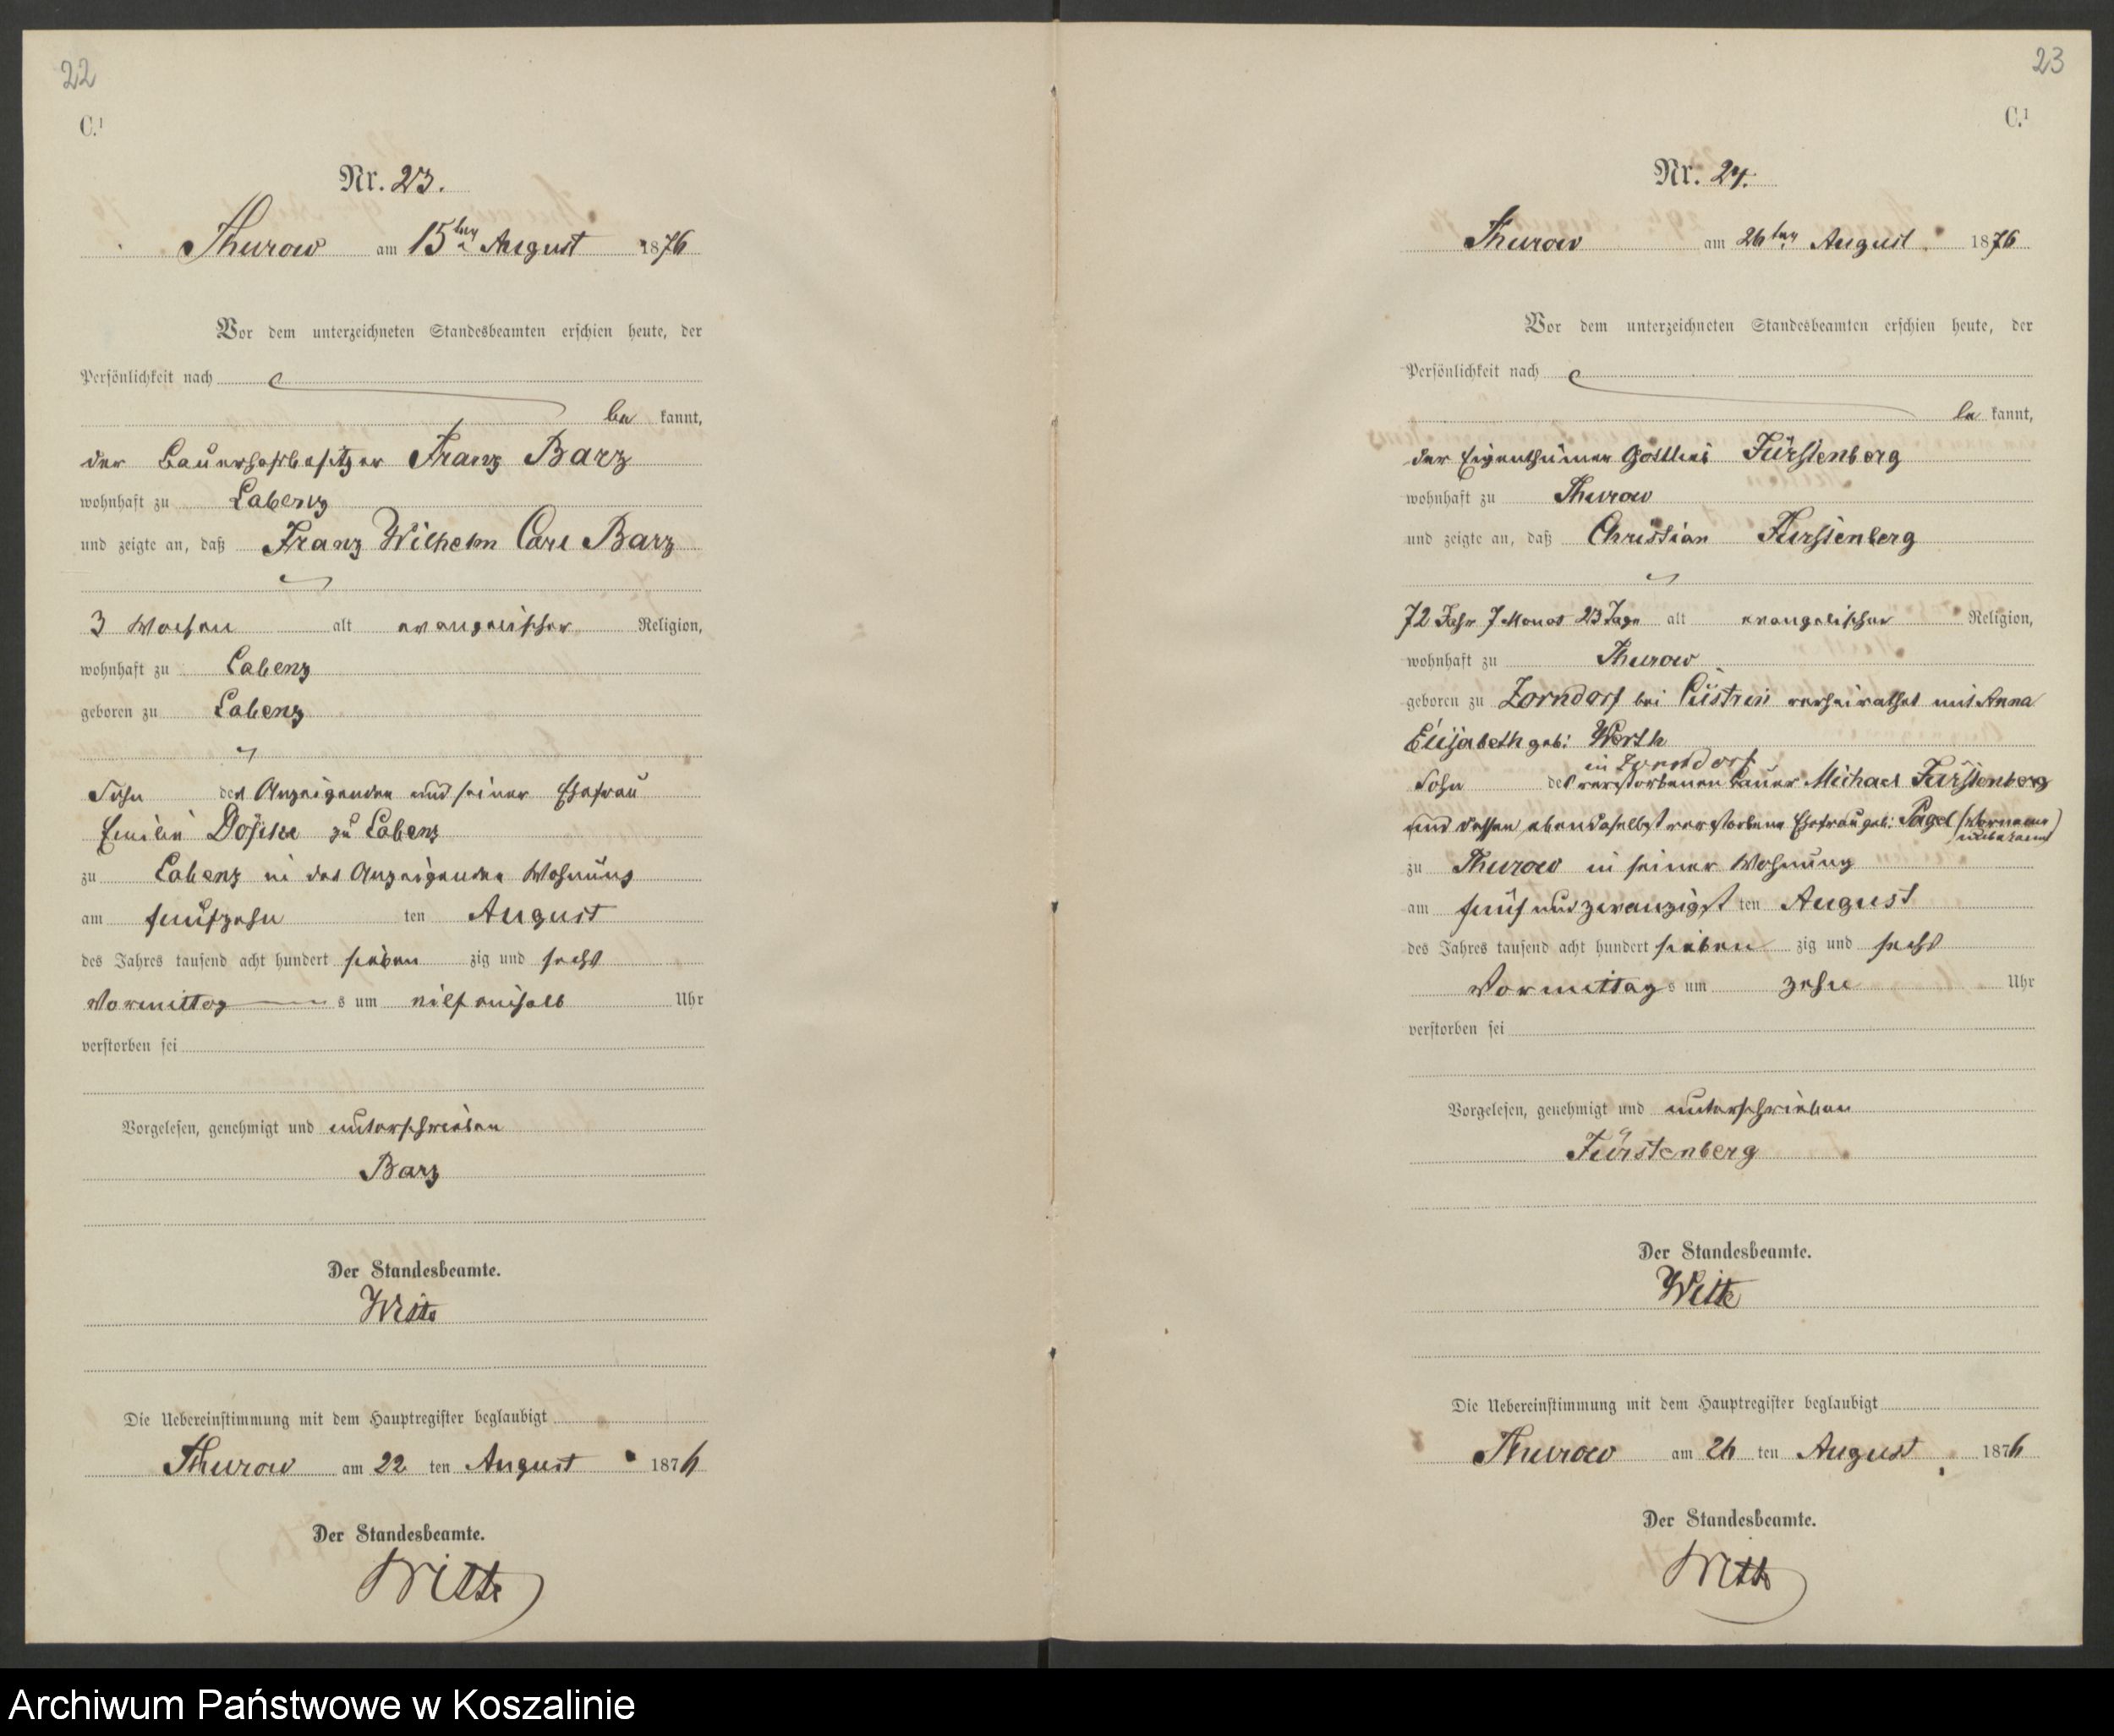 22
C.1
Nr. 23.
Thurow am 15ten August 1876
Vor dem unterzeichneten Standesbeamten erschien heute, der
Persönlichkeit nach
be kannt,
der Bauerhofsbesitzer Franz Barz
wohnhaft zu Labenz
und zeigte an, daß Franz Wilhelm Carl Barz
3 Wochen alt evangelischer Religion,
wohnhaft zu Labenz
geboren zu Labenz
Sohn des Anzeigenden und seiner Ehefrau
Emilie zu Labenz
zu Labenz in des Anzeigenden Wohnung
am fünfzehn ten August
des Jahres tausend acht hundert sieben zig und sechs
Vormittag s um eilf einhalb Uhr
verstorben sei
Vorgelesen, genehmigt und unterschrieben
Barz
Der Standesbeamte.
Witte
Die Uebereinstimmung mit dem Hauptregister beglaubigt
Thurow am 22 ten August 1876
Der Standesbeamte.
Witte
23
C.1
Nr. 24.
Thurow am 26ten August 1876
Vor dem unterzeichneten Standesbeamten erschien heute, der
Persönlichkeit nach
be kannt,
der Eigenthümer Gottlieb Fürstenberg
wohnhaft zu Thurow
und zeigte an, daß Christian Fürstenberg
72 Jahr 7 Monat 23 Tage alt evangelischer Religion,
wohnhaft zu Thurow
geboren zu Zorndorf bei Cüstrin verheirathet mit Anna
Elisabeth geb: Werth
in Zorndorf
Sohn des verstorbenen Bauer Michael Fürstenberg
und dessen ebendaselbst verstorbene Ehefrau geb: Pagel (Vorname
unbekannt)
zu Thurow in seiner Wohnung
am fünf und zwanzigst ten August
des Jahres tausend acht hundert sieben zig und sechs
Vormittag s um zehn Uhr
verstorben sei
Vorgelesen, genehmigt und unterschrieben
Fürstenberg
Der Standesbeamte.
Witte
Die Uebereinstimmung mit dem Hauptregister beglaubigt
Thurow am 26 ten August 1876
Der Standesbeamte.
Witte
Archiwum Państwowe w Koszalinie